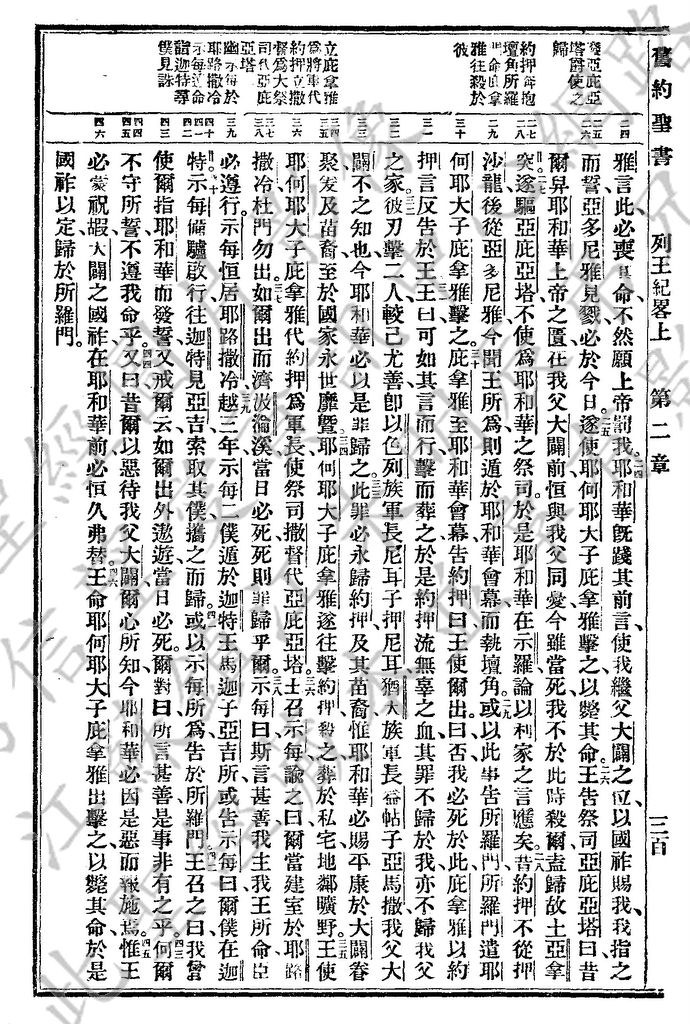 舊約聖書 列王紀畧上 第二章 三百
廢亞庇亞
塔爵使之
歸
約押每抱
壇角所羅
門命庇拿
雅往殺於
彼
立庇拿雅
為將軍代
約押立撒
督為大祭
司代亞庇
亞塔
幽示每於
耶路撒冷
示每違命
詣迦特尋
僕見誅
雅言此必喪其命不然願上帝罰我耶和華旣踐其前言使我繼父大闢之位以國祚賜我我指之
而誓亞多尼雅見戮必於今日遂使耶何耶大子庇拿雅擊之以斃其命王告祭司亞庇亞塔曰昔
爾舁耶和華上帝之匱在我父大闢前恒與我父同憂今雖當死我不於此時殺爾盍歸故土亞拿
突遂驅亞庇亞塔不使為耶和華之祭司於是耶和華在示羅論以利家之言應矣昔約押不從押
沙龍後從亞多尼雅今聞王所為則遁於耶和華會幕而執壇角或以此事告所羅門所羅門遣耶
何耶大子庇拿雅擊之庇拿雅至耶和華會幕告約押曰王使爾出曰否我必死於此庇拿雅以約
押言反告於王王曰可如其言而行擊而葬之於是約押流無辜之血其罪不歸於我亦不歸我父
之家彼刃擊二人較己尤善卽以色列族軍長尼耳子押尼耳猶大族軍長益帖子亞馬撒我父大
闢不之知也今耶和華必以是罪歸之此罪必永歸約押及其苗裔惟耶和華必賜平康於大闢眷
聚爰及苗裔至於國家永世靡曁耶何耶大子庇拿雅遂往擊約押殺之葬於私宅地鄰曠野王使
耶何耶大子庇拿雅代約押為軍長使祭司撒督代亞庇亞塔王召示每諭之曰爾當建室於耶路
撒冷杜門勿出如爾出而濟汲淪溪當日必死死則罪歸乎爾示每曰斯言甚善我主我王所命臣
必遵行示每恒居耶路撒冷越三年示每二僕遁於迦特王馬迦子亞吉所或告示每曰爾僕在迦
特示每備驢啟行往迦特見亞吉索取其僕攜之而歸或以示每所為告於所羅門王召之曰我曾
使爾指耶和華而發誓又戒爾云如爾出外遨遊當日必死爾對曰所言甚善是事非有之乎何爾
不守所誓不遵我命乎又曰昔爾以惡待我父大闢爾心所知今耶和華必因是惡而報施焉惟王
必蒙祝嘏大闢之國祚在耶和華前必恒久弗替王命耶何耶大子庇拿雅出擊之以斃其命於是
國祚以定歸於所羅門